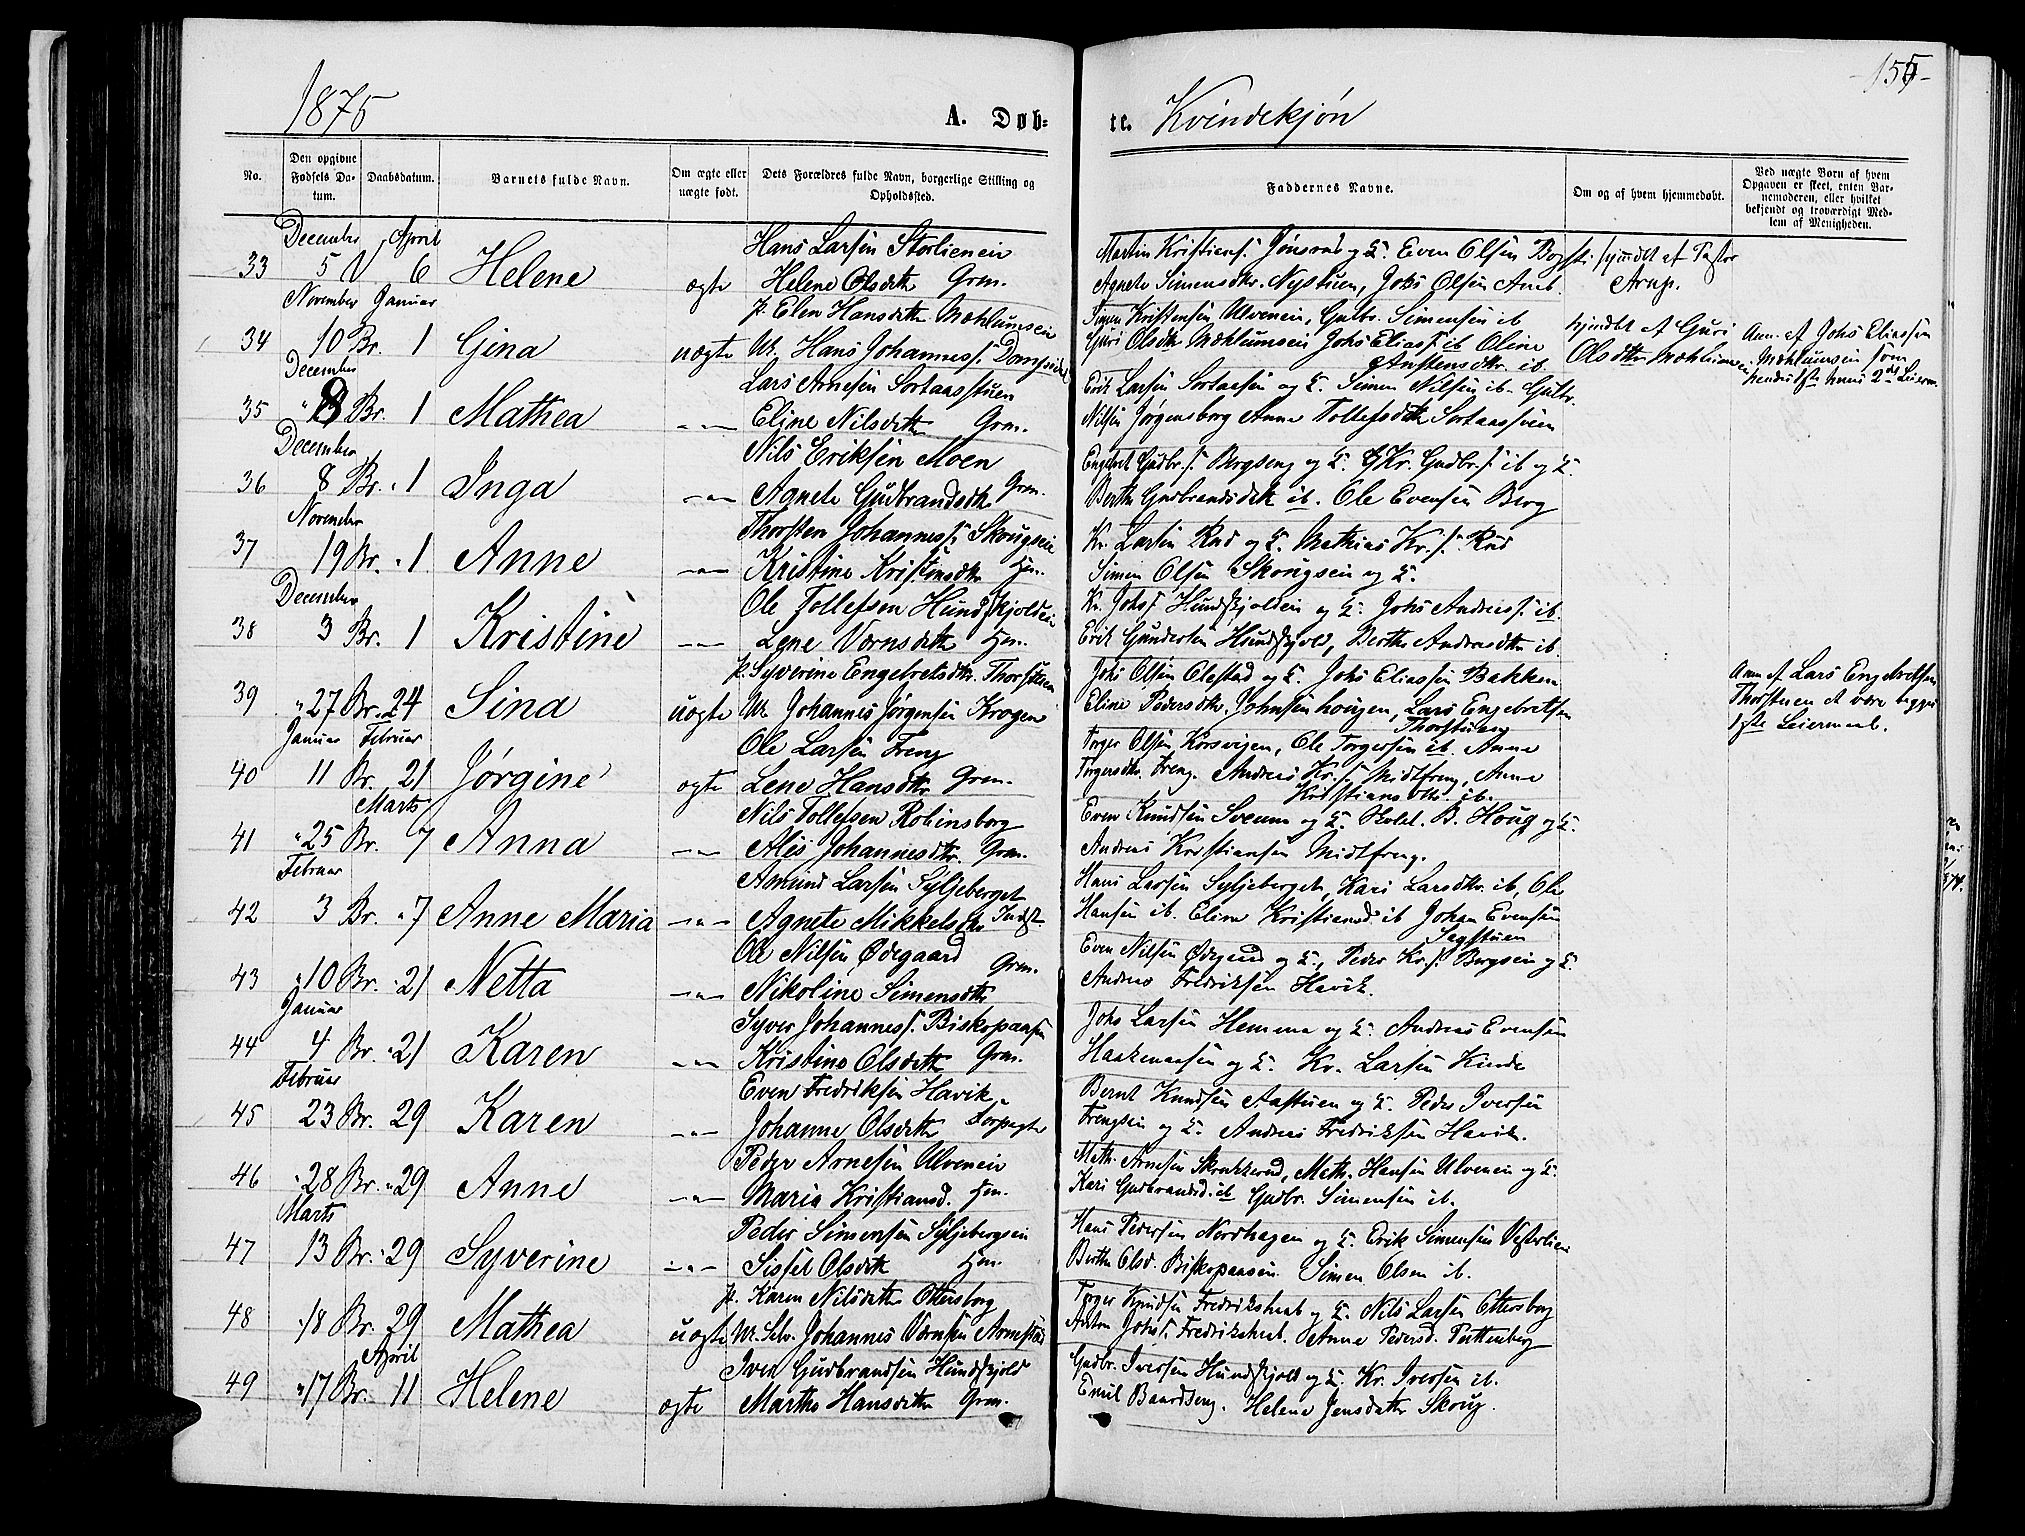 1875
A. Døb-
te. Kvindekjøn
-155-
No.
Den opgivne Fødsels Da-tum.
Daabsdatum.
Barnets fulde Navn.
Om ægte eller uægte født.
Dets Forældres fulde Navn, borgerlige Stilling og Opholdssted.
Faddernes Navne.
Om og af hvem hjemmedøbt.
Ved uægte Børn af hvem Opgaven er skeet, enten Bar-nemoderen, eller hvilket bekjendt og troværdigt Med-lem af Menigheden.
December April
Hans Larsen Storlieneie
33 5 6 Helene ægte Helene Olsdtr Grm.
Even Olsen
Agnete Simensdtr. Nystuen, Johs Olsen
November Januar
P. Elen Hansdtr. Mæhlumseie
34 10 Br. 1 Gina uægte U. Hans Johanness.
Kristensen Ulveneie, Gudbr. Simensen ib
Guri Olsdtr Mæhlumseie Johs Eliass. ib Oline
Anstensdtr ib.
hjmdbt af Guri
Olsdtr
Ann. af Johs Eliassen
Mæhlumseie som
December
Lars Arnesen Sortaasstuen
35 8 Br. 1 Mathea Eline Nilsdtr Grm.
Erik Larsen Sortaasen og Simen Nilsen ib. Gulbr.
Nilsen Jørgensborg Anne Tollefsdtr
December
Nils Eriksen Moen
36 8 Br. 1 Inga Agnete Gudbrandsdtr Grm.
Engebret Gudbr.s. Bergseng og Kr. Gudbr.s. ib og
Berthe Gudbrandsdtr ib. Ole Evensen Berg
November
Thorsten Johanness. Skougseie
37 19 Br. 1 Anne Kristine Kristensdtr Hm.
Kr. Larsen Rud og Mathias Kr.s. Rud
Simen Olsen Skougseie og
December
Ole Tollefsen Hundskjoldeie
38 3 Br. 1 Kristine Lene Larsdtr Hm.
Kr. Johs.s. Hundskjoldeie og Johs Andreass. ib.
Erik Gundersen Hundskjold, Berthe Andreasdtr ib.
P. Syverine Engebretsdtr. Thorstuen
39 27 Br. 24 Sina uægte U. Johannes Jørgensen Krogen
Johs Olsen Olestad og Johs Eliassen Bakken
Eline Pedersdtr. Johnsenhougen, Lars Engebretsen
Thorstuen
Ann. af Lars Engebretsen
Thorstuen at være begges
1ste Leiermaal.
Januar Februar
Ole Larsen Freng
40 11 Br. 21 Jørgine ægte Lene Hansdtr Grm.
Torger Olsen Korsvigen, Ole Torgersen ib. Anne
Torgersdtr. Freng. Andreas Kr.s. Midtfreng, Anne
Kristiansdtr. ib.
Marts
Nils Tollefsen Robinsborg
41 25 Br. 7 Anna Alis Johannesdtr. Grm.
Even Knudsen Sveum og B. Houg og
Andreas Kristiansen Midtfreng.
Februar
Amund Larsen Syljeberget
42 3 Br. 7 Anne Maria Agnete Mikkelsdtr Indst.
Hans Larsen Syljeberget, Kari Larsdtr. ib, Ole
Hansen ib. Eline Kristiansd. ib Johan Evensen
Sagstuen
Ole Nilsen Ødegaard
43 10 Br. 21 Netta Nikoline Simensdtr Grm.
Even Nilsen Ødegaard og Peder Kr.s. Bergseie og
Andreas Fredriksen Havik.
Januar
Syver Johanness. Biskopaasen
44 4 Br. 21 Karen Kristine Olsdtr Grm.
Johs Larsen Hemma og Andreas Evensen
Haakenaasen og Kr. Larsen Kinde
Februar
Even Fredriksen Havik
45 23 Br. 29 Karen Johanne Olsdtr Forpagter
Bernt Knudsen Aastuen og Peder Iversen
Frengseie og Andreas Fredriksen Havik.
Peder Arnesen Ulveneie
46 28 Br. 29 Anne Maria Kristiansd. Hm.
Math. Arnesen Skrukkerud, Math. Hansen Ulveneie og
Kari Gudbrandsd. ib Gudbr. Simensen ib.
Marts
Peder Simensen Syljebergseie
47 13 Br. 29 Syverine Sissel Olsdtr Hm.
Hans Pedersen Nordhagen og Erik Simensen Vesterlien
Berthe Olsd. Biskopaasen Simen Olsen ib.
P. Karen Nilsdatter Ottersborg
48 18 Br. 29 Mathea uægte U. Selv. Johannes
Torger Knudsen Fredrikshaab og Nils Larsen Ottersborg
Anton Johs.s. Fredrikshaab. Anne Pedersd. Puttenberg
April
Iver Gudbrandsen Hundskjold
49 17 Br. 11 Helene ægte Marthe Hansdtr Grm.
Gudbr. Iversen Hundskjold og Kr. Iversen ib.
Emil Baardseng. Helene Jensdatter Skoug.